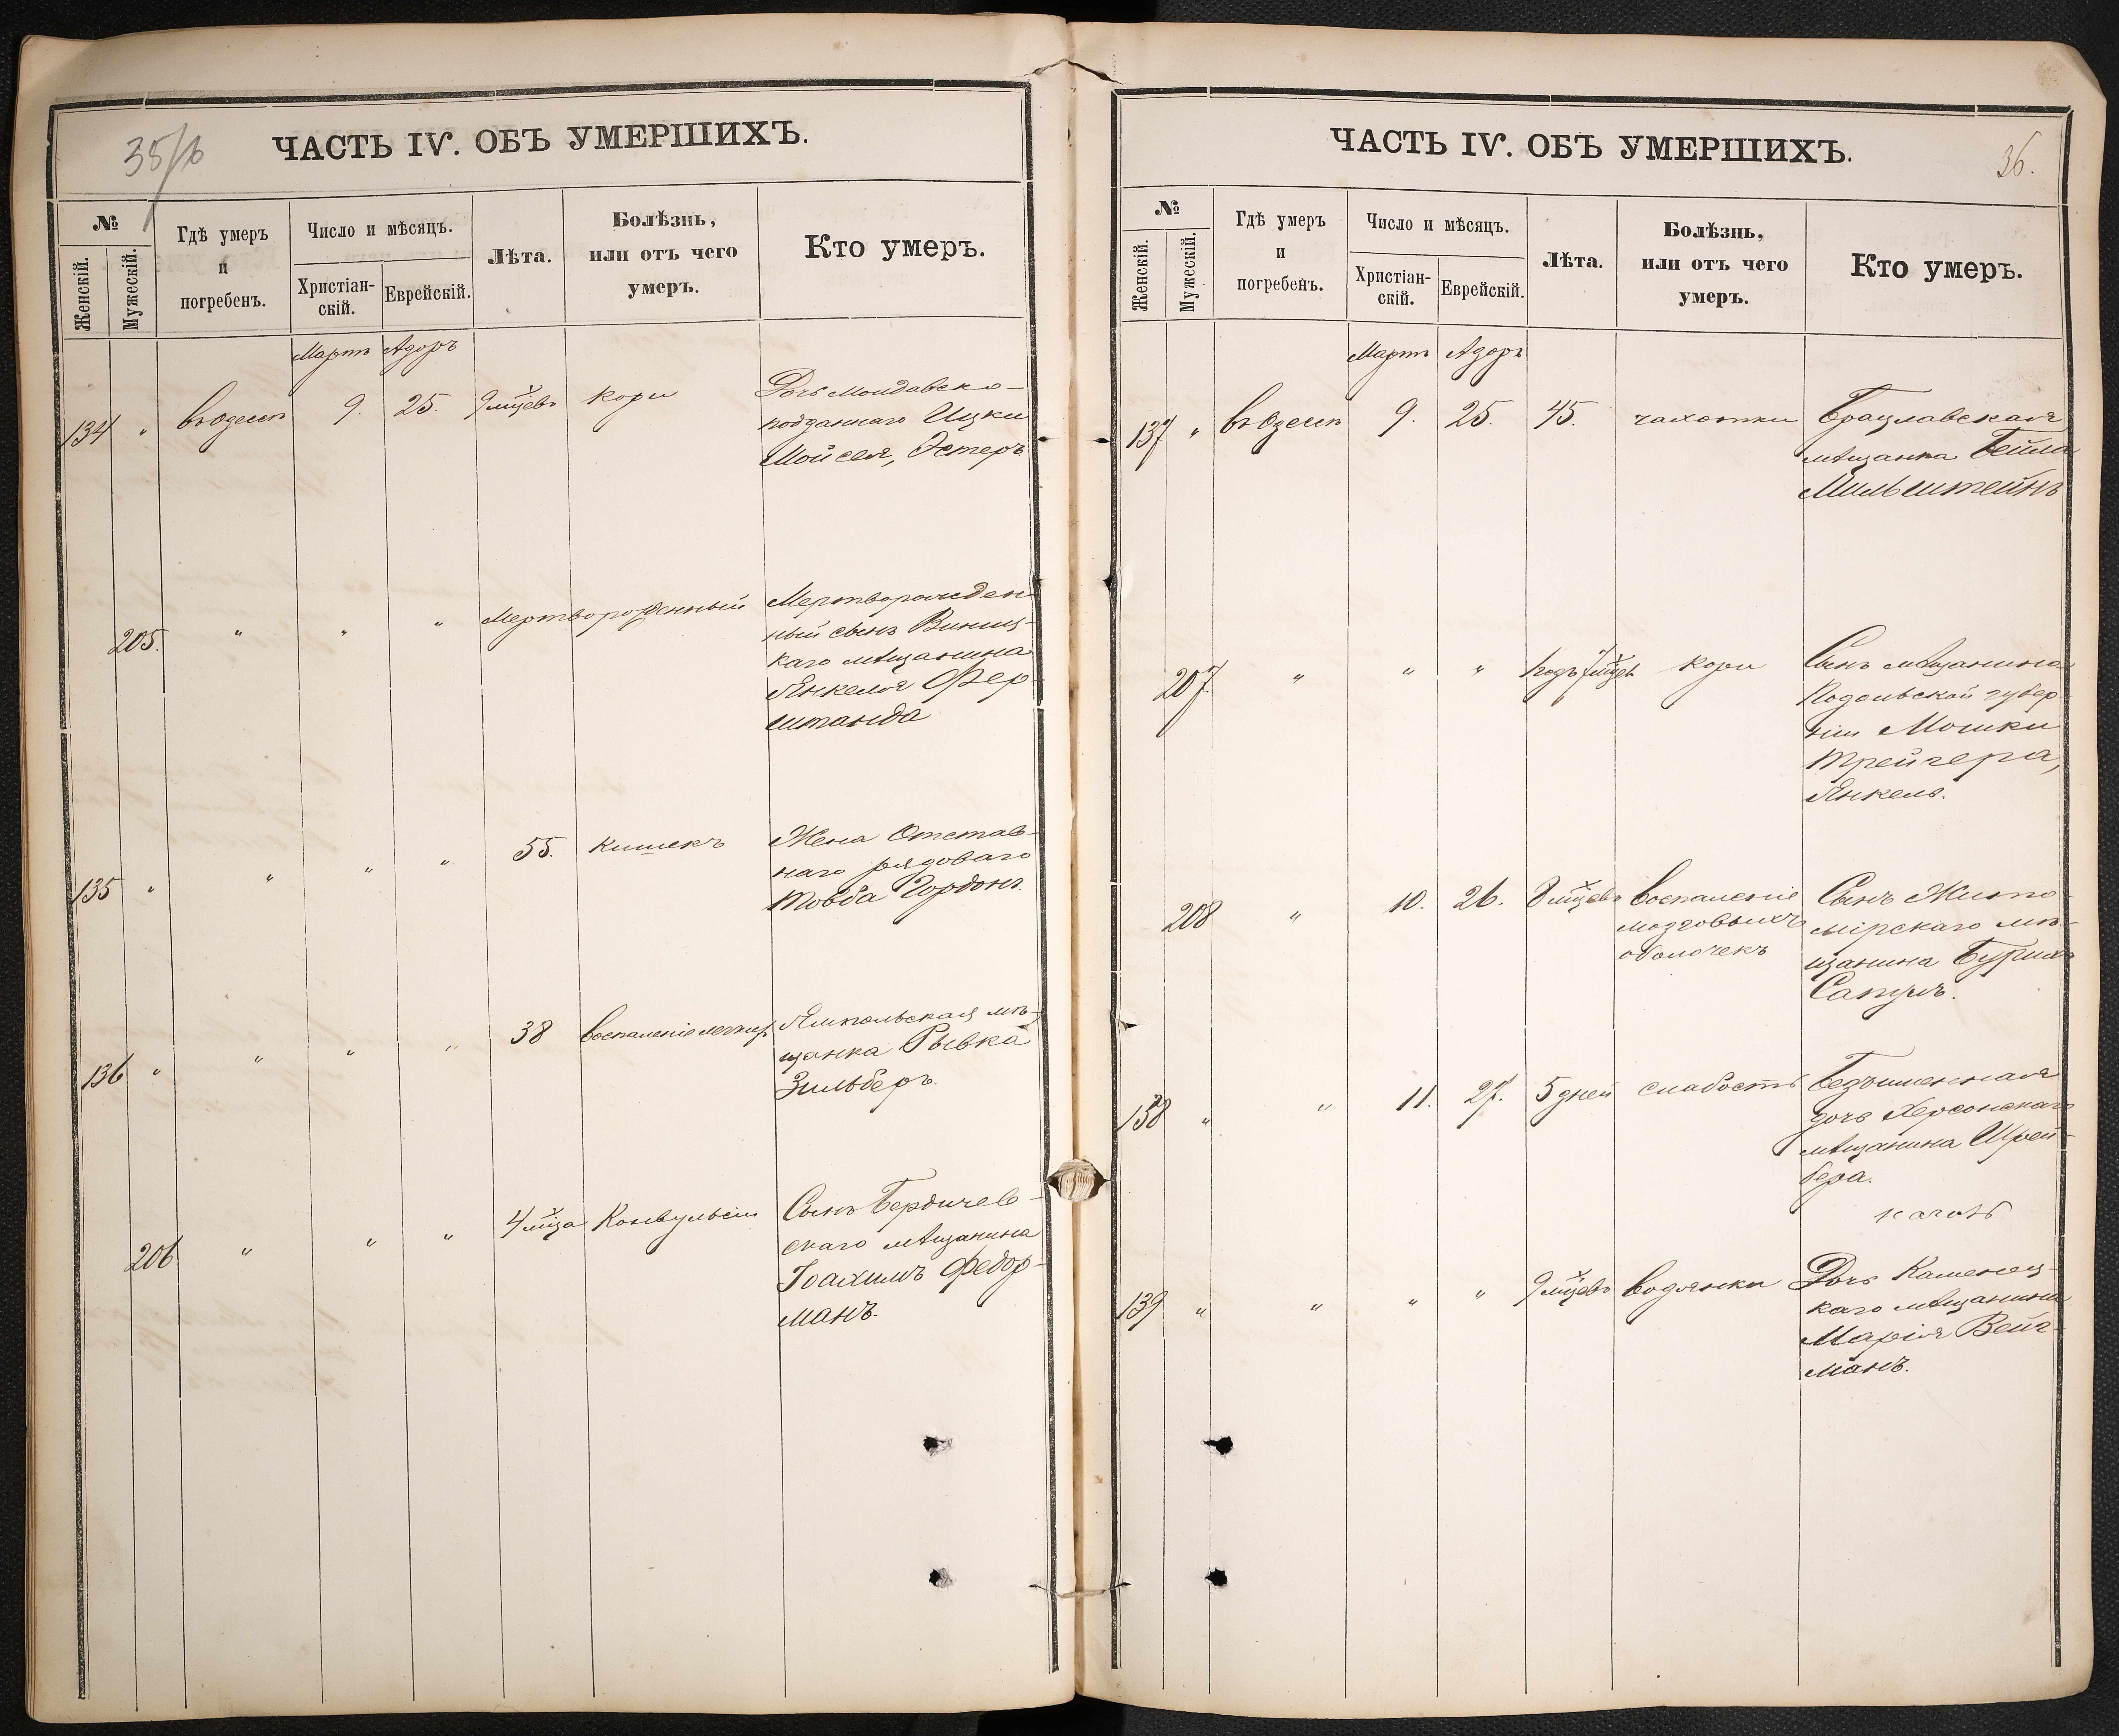 35/b
ЧАСТЬ IV. ОБЪ УМЕРШИХЪ.
№
Женскій.
Мужескій.
Гдѣ умеръ
и
погребенъ.
Число и мѣсяцъ.
Христіан-
скій.
Еврейскій.
Лѣта.
Болѣзнь,
или отъ чего
умеръ.
Кто умеръ.
Мартъ Адоръ
134 " въ одессѣ 9. 25. 9 мѣцевъ кори Дочь Молдавско-
подданнаго Ицки
Мойселя, Эстеръ
205. " " " Мертворожденный Мертворожден-
ный сынъ Виниц-
каго мѣщанина
Янкеля Фер-
штанда
135 " " " " 55. кишекъ Жена Отстав-
наго рядоваго
Товба Гордонъ.
136 " " " " 38 воспаленіе легкихъ Ямпольская мѣ-
щанка Рывка
Зильберъ.
206 " " " 4 мѣца Конвульсіи Сынъ Бердичев-
скаго мѣщанина
Іоахимъ Федор-
манъ.
36.
ЧАСТЬ IV. ОБЪ УМЕРШИХЪ.
№
Женскій.
Мужескій.
Гдѣ умеръ
и
погребенъ.
Число и мѣсяцъ.
Христіан-
скій.
Еврейскій.
Лѣта.
Болѣзнь,
или отъ чего
умеръ.
Кто умеръ.
Мартъ Адоръ
137 " въ Одессѣ 9. 25. 45. чахотки Брацлавская
мѣщанка Бейла
Мильштейнъ
207. " " " 1 годъ 7 мѣцевъ кори Сынъ мѣщанина
Подольской губер
ніи Мошки
Трейгера,
Янкель.
208 " 10. 26. 8 мѣцевъ воспаленіе Сынъ Жито-
мозговыхъ мірскаго мѣ-
оболочекъ щанина
138 " " 11. 27. 5 дней слабость Безъименная
дочь Херсонскаго
мѣщанина Шрей-
бера.
139 " " " " 9 мѣцевъ водянки Дочь Каменец-
каго мѣщанина
Марія Вейц-
манъ.